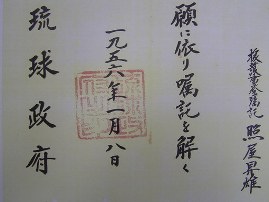 援護業務嘱託 照屋昇雄
願に依り嘱託を解く
一九五六年一月八日
琉球政府